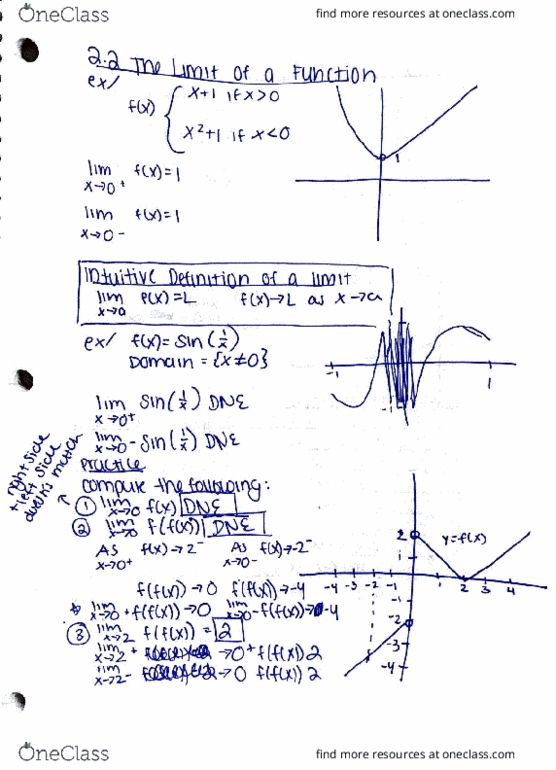 OneClass find more resources at oneclass.com
2.2 The Limit of a Function
ex/
f(x) { x+1 if x>0
x²+1 if x<0
1
lim f(x)=1
x→0+
lim f(x)=1
x→0-
Intuitive Definition of a limit
lim f(x)=L f(x)→L as x→a
x→a
ex/ f(x)= sin(1/x)
Domain = {x≠0}
-1 1
-1
lim sin(1/x) DNE
x→0+
lim sin(1/x) DNE
x→0-
right side
+ left side
doesn't match
Practice
compute the following:
① lim x→0 f(x) DNE
② lim x→0 f(f(x)) DNE
As f(x)→2⁻ As f(x)→-2⁻
x→0+ x→0-
f(f(x))→0 f(f(x))→-4
lim x→0+ f(f(x))→0 lim x→0- f(f(x))→-4
③ lim x→2 f(f(x)) = 2
lim x→2+ →0+ f(f(x)) 2
lim x→2- →0 f(f(x)) 2
y=f(x)
2
1
-4 -3 -2 -1 1 2 3 4
-1
-2
-3
-4
OneClass find more resources at oneclass.com